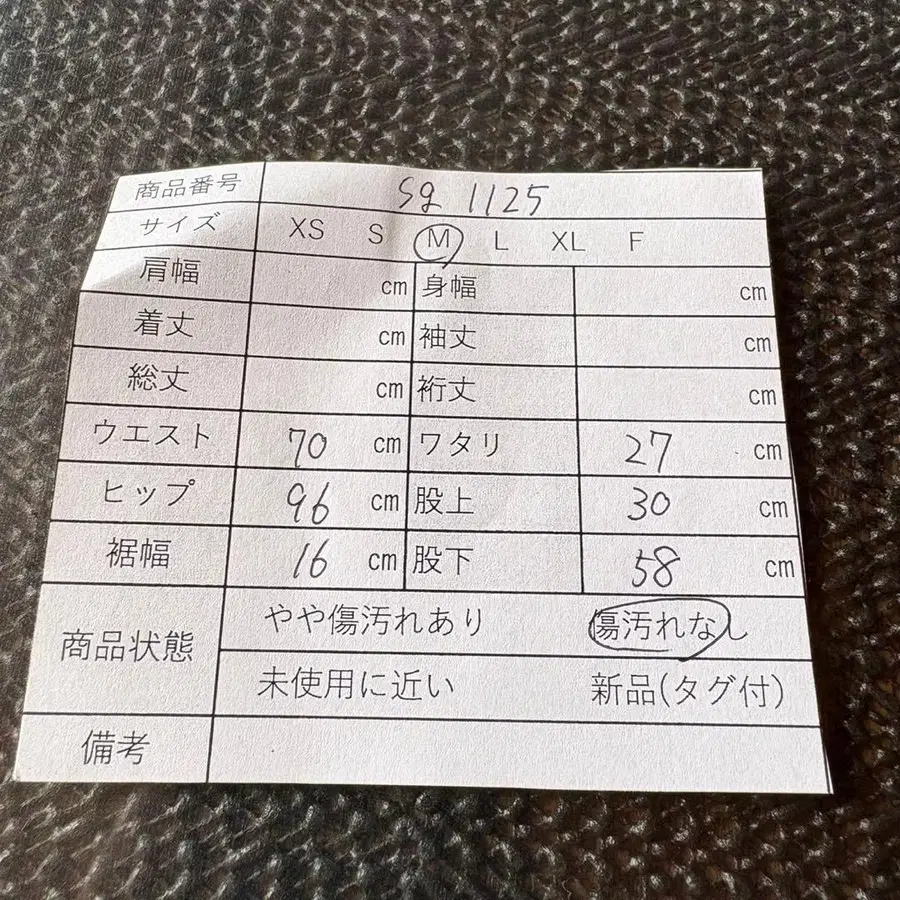 商品番号 sg 1125
サイズ XS S M L XL F
肩幅 cm 身幅 cm
着丈 cm 袖丈 cm
総丈 cm 裄丈 cm
ウエスト 70 cm ワタリ 27 cm
ヒップ 96 cm 股上 30 cm
裾幅 16 cm 股下 58 cm
商品状態 やや傷汚れあり 傷汚れなし
未使用に近い 新品(タグ付)
備考